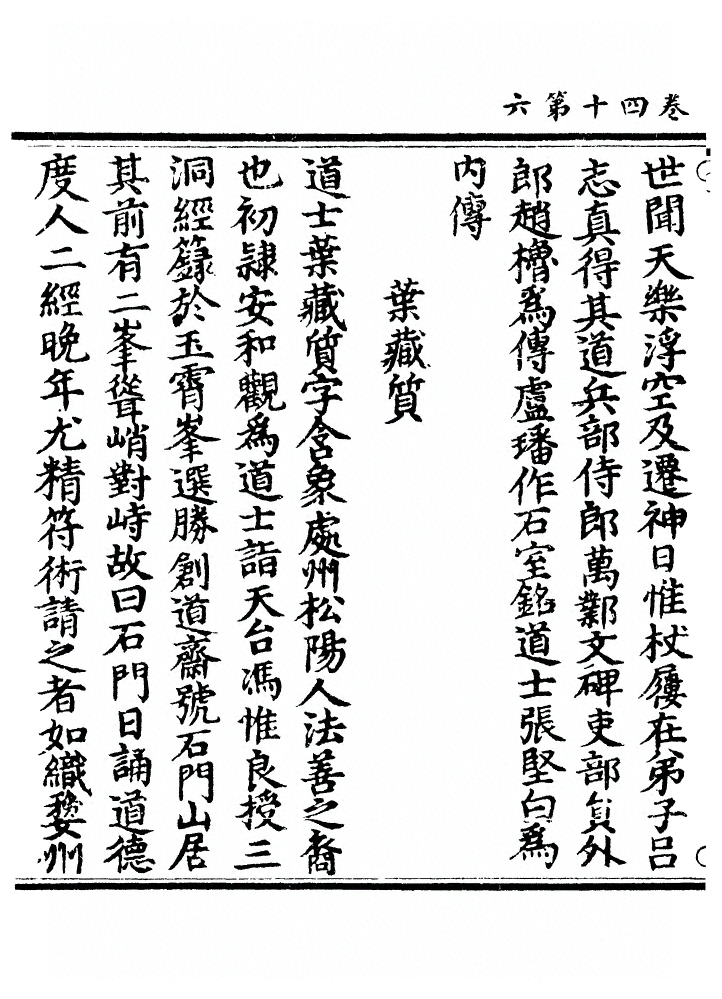 卷四十第六
世聞天樂浮空及遷神日惟杖屨在弟子呂
志真得其道兵部侍郎萬鄴文碑吏部負外
郎趙櫓爲傳盧璠作石室銘道士張堅白爲
內傳
葉藏質
道士葉藏質字含象處州松陽人法善之裔
也初隷安和觀爲道士詣天台馮惟良授三
洞經籙於玉霄峯選勝創道齋號石門山居
其前有二峯聳峭對峙故曰石門日誦道德
度人二經晚年尤精符術請之者如織婺州